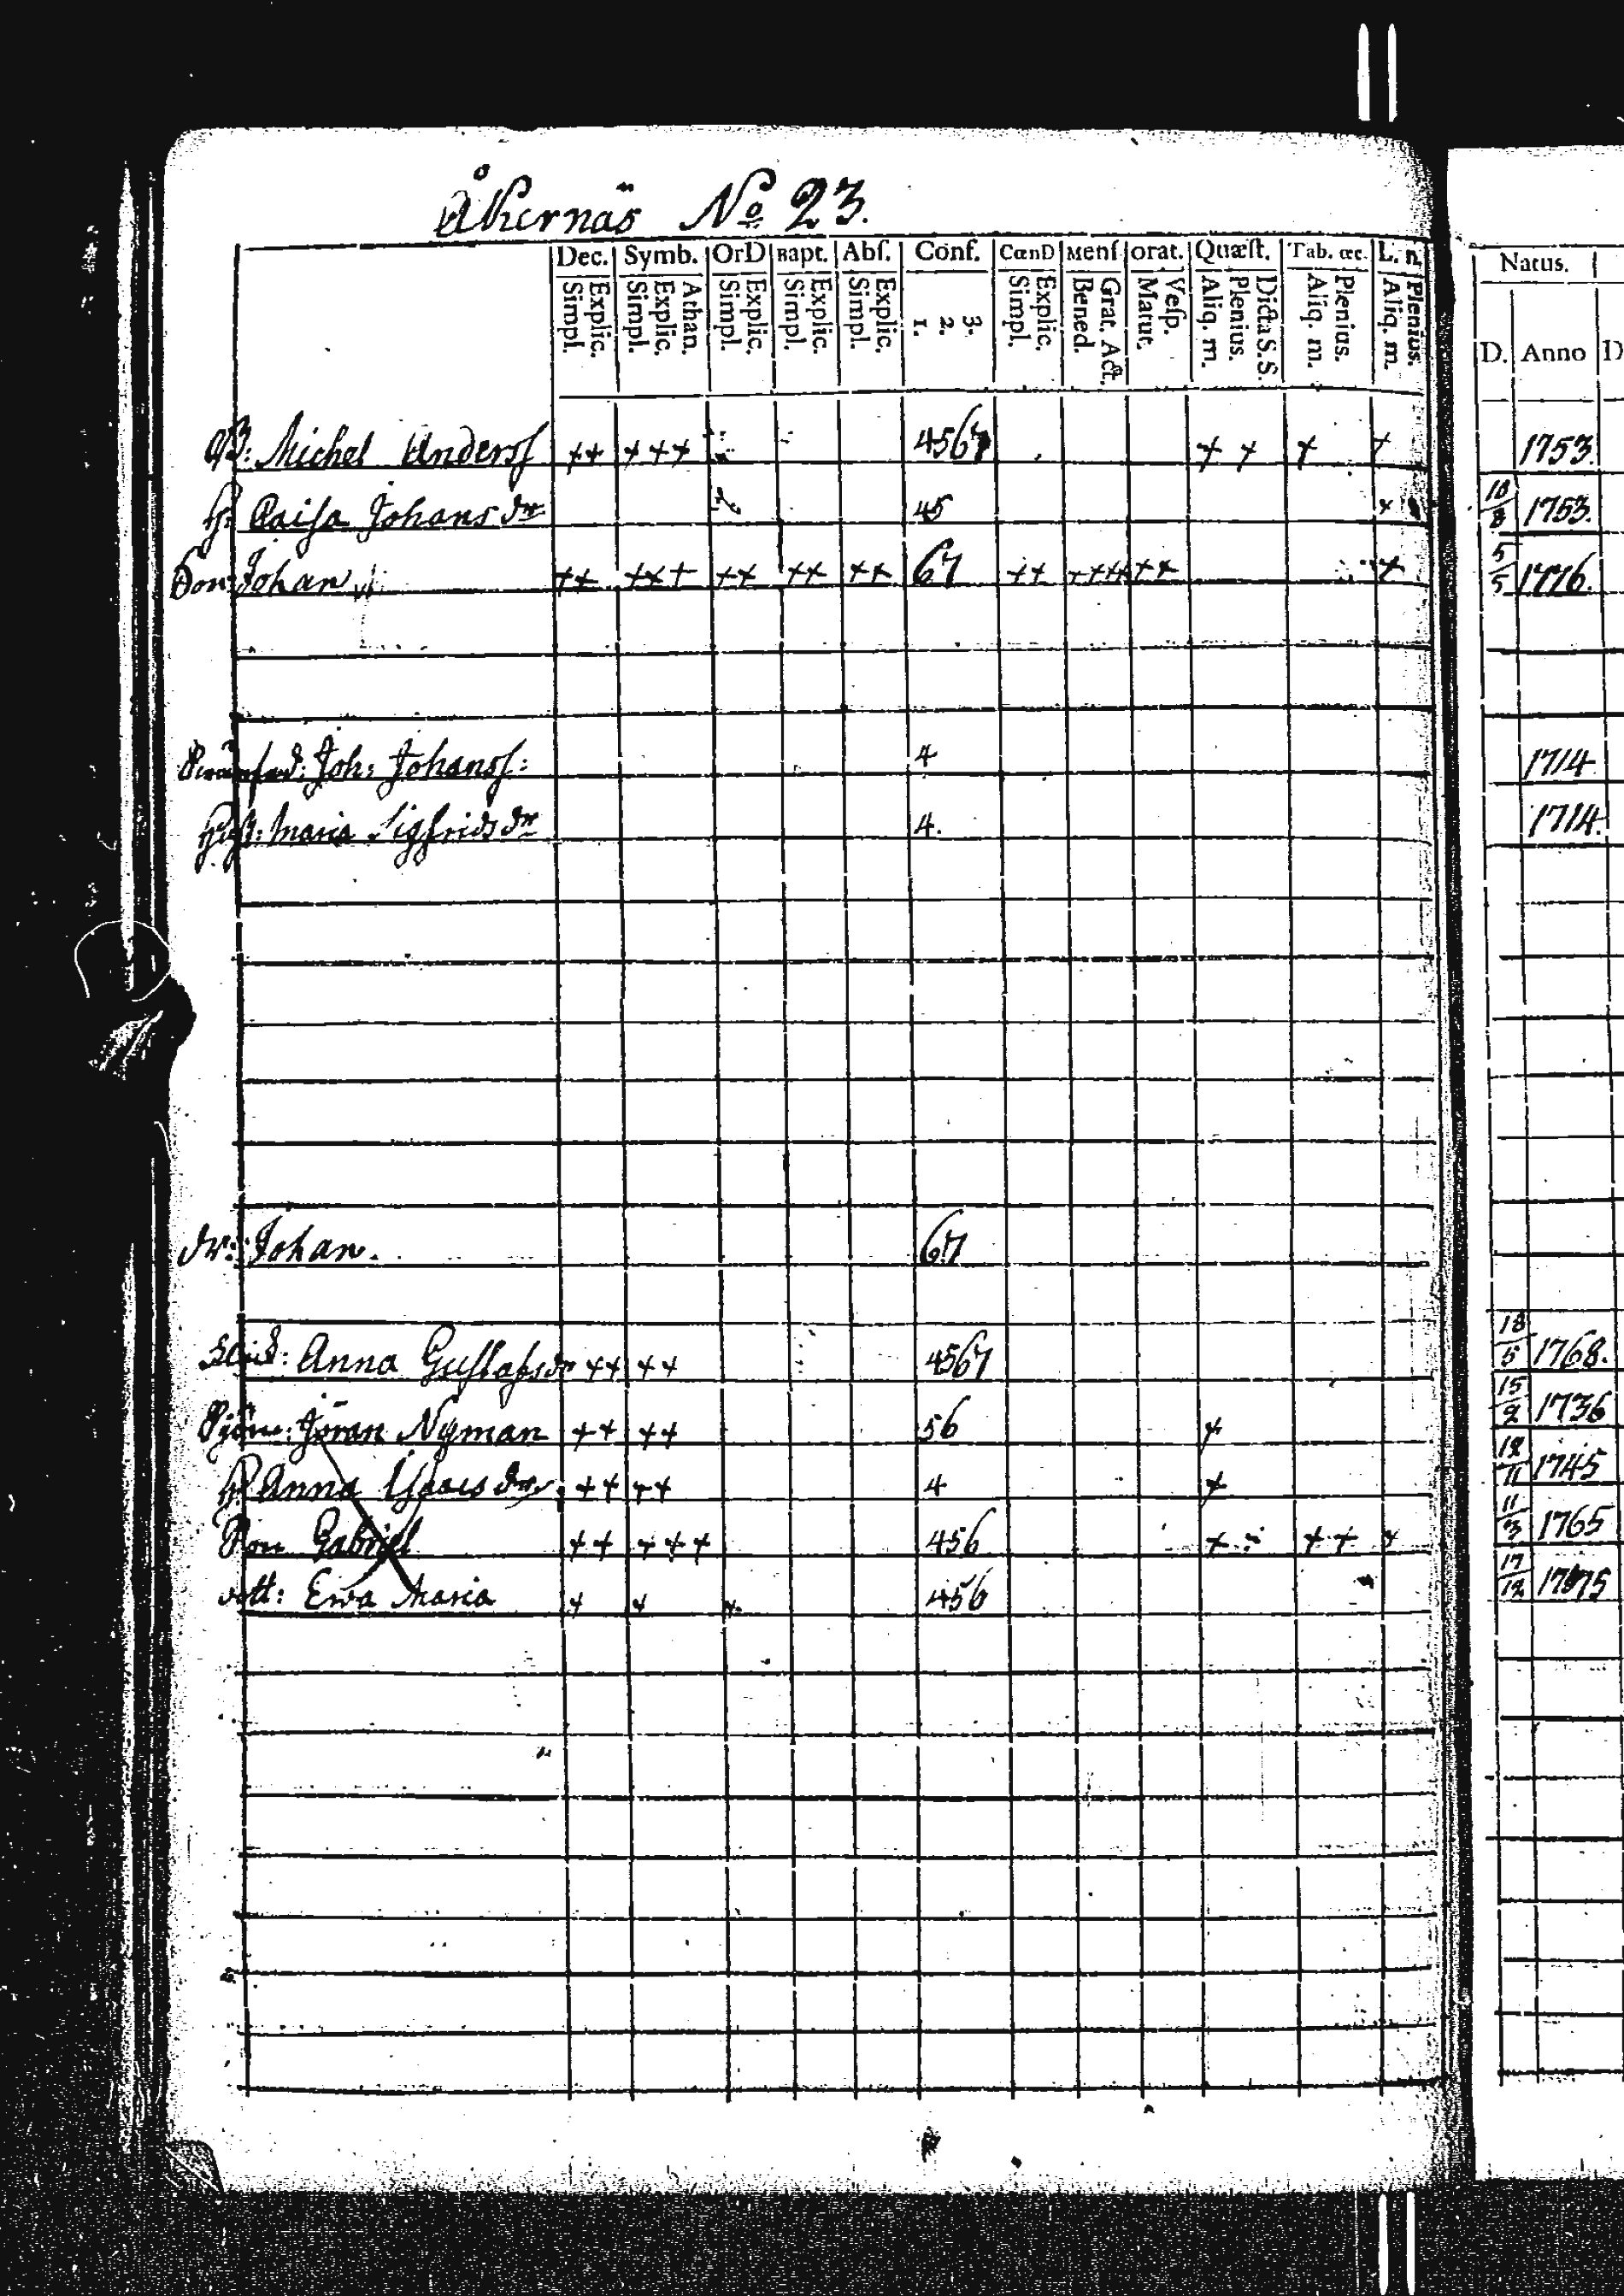 Åkernäs No 23.
Dec. Symb. OrD Bapt. Abſ. Conf. CœnD Menſ. orat. Quæſt. Tab. œc. L. n. Natus.
Explic. Simpl. Athan. Explic. Simpl. Explic. Simpl. Explic. Simpl. Explic. Simpl. 3. 2. 1. Explic. Simpl. Grat. Act. Bened. Veſp. Matut. Dicta S. S. Plenius. Aliq. m. Plenius. Aliq. m. Plenius. Aliq. m. D. Anno D
Michel Andersſ ++ +++ 4567 + + + + 1753.
h: Caisa Johans dr 45 + 18/8 1753.
Son: Johan ++ +++ ++ ++ ++ 67 ++ ++++ ++ + 5/5 1776.
Joh: Johansſ: 4 1714
Maria Sigfrids dr 4. 1714.
dr: Johan. 67
Anna Gustafs dr ++ ++ 4567 18/5 1768.
Jöran Nyman ++ ++ 56 + 15/2 1736
h: Anna Isaacs dr ++ ++ 4 + 12/11 1745
Son Gabriel ++ +++ 456 + ++ + 11/3 1765
dott: Ewa Maria + + +. 456 17/12 1775